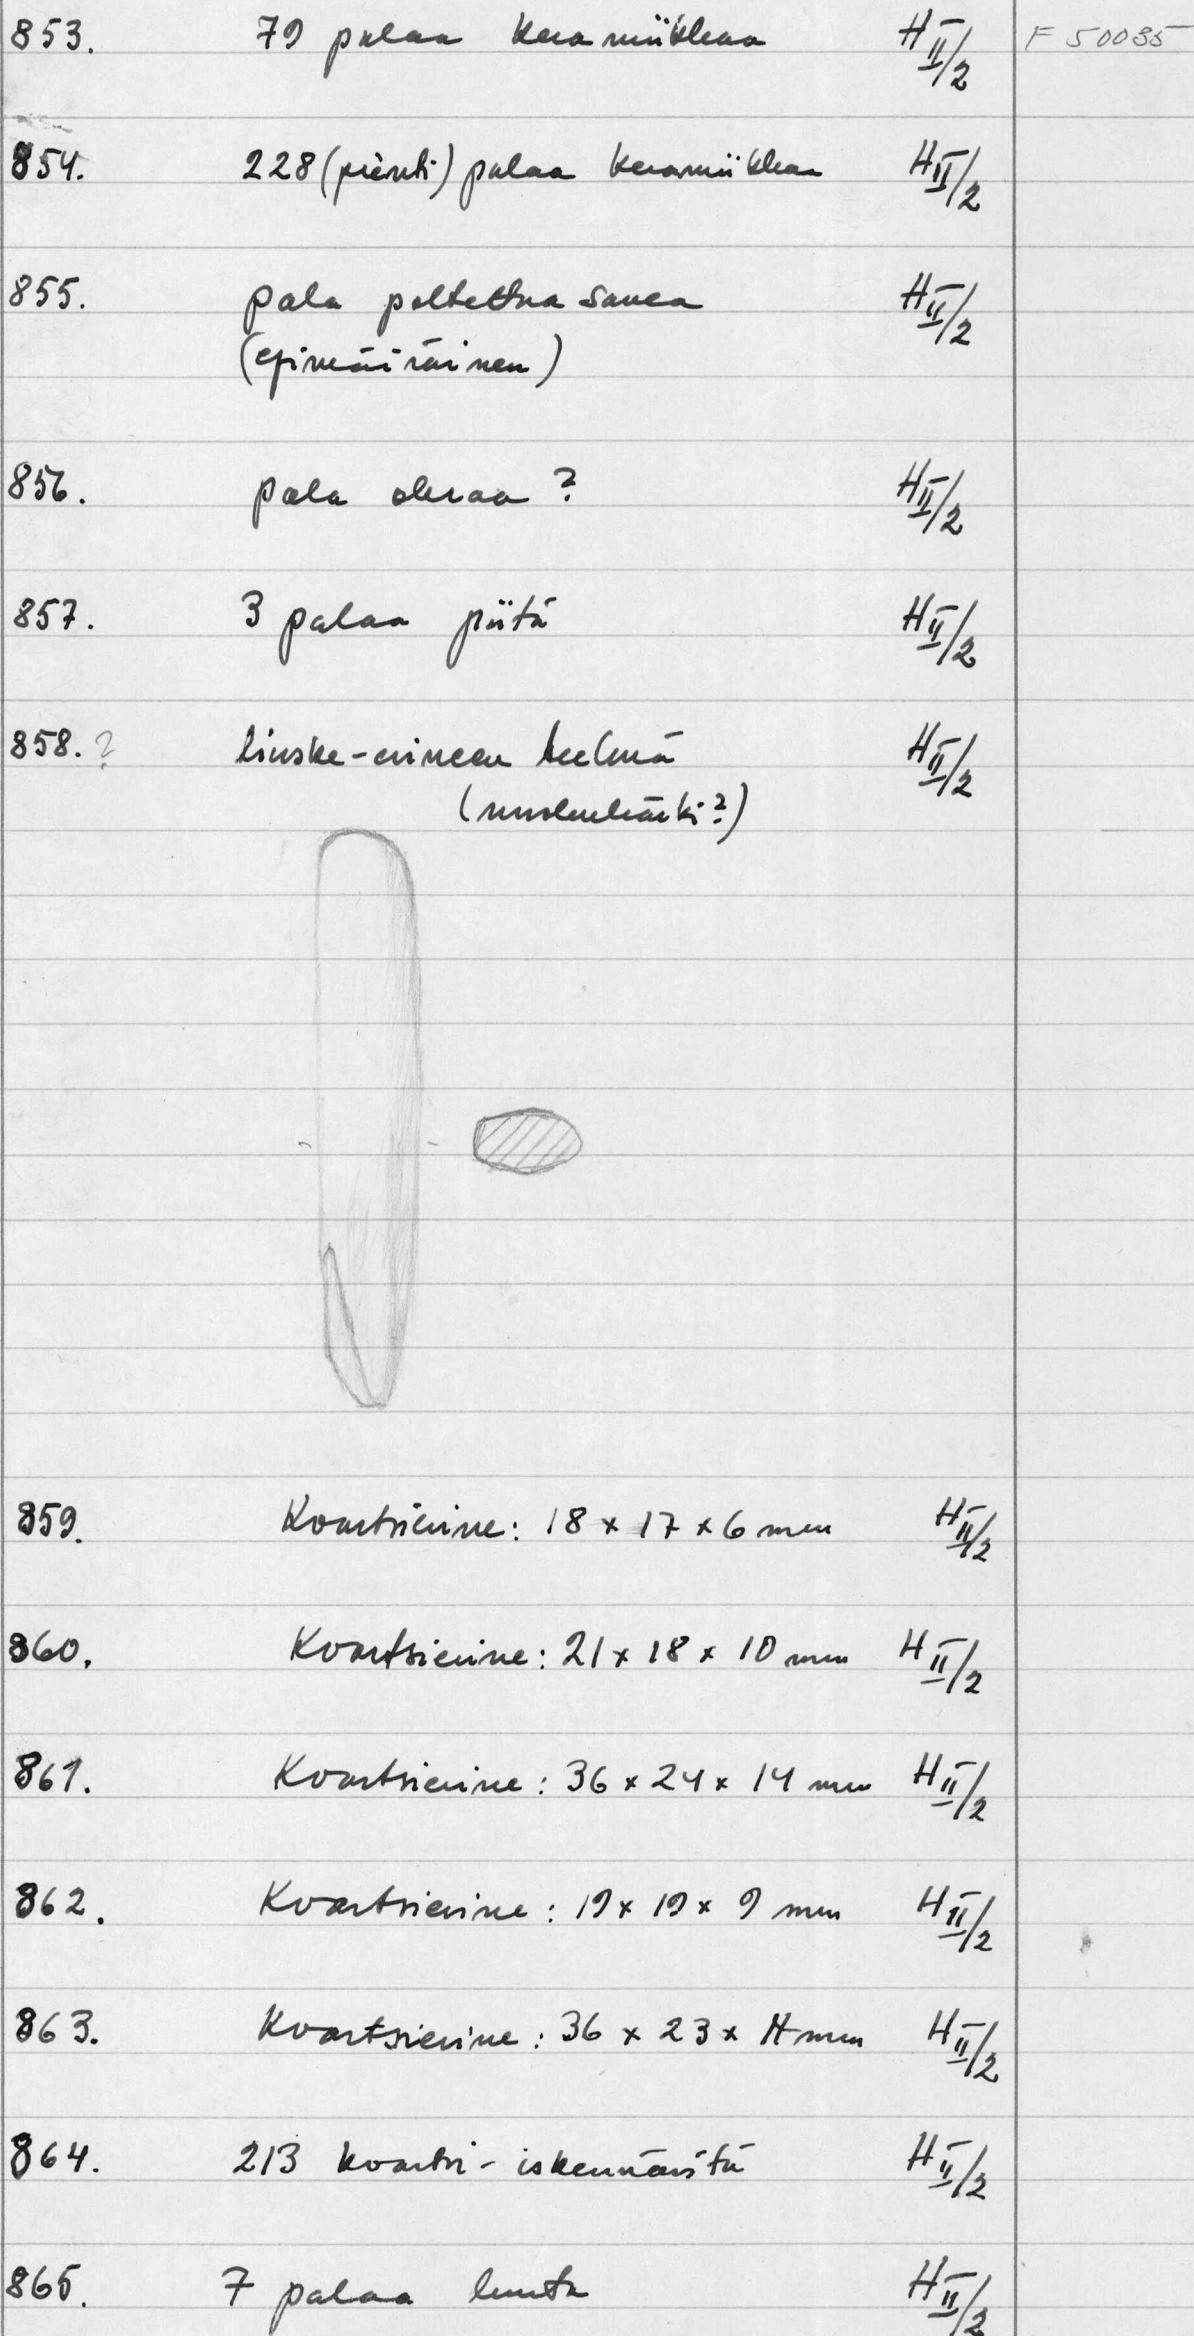 853. 79 palaa keramiikkaa H II/2 F 50035
854. 228 (pientä) palaa keramiikkaa H II/2
855. pala poltettua savea H II/2
(epimääräinen)
856. pala okraa ? H II/2
857. 3 palaa piitä H II/2
858. ? liuske-esineen katkelma H II/2
(nuolenkärki?)
859. Kvartsiesine: 18 x 17 x 6 mm H II/2
860. Kvartsiesine: 21 x 18 x 10 mm H II/2
861. Kvartsiesine: 36 x 24 x 14 mm H II/2
862. Kvartsiesine: 19 x 19 x 9 mm H II/2
863. Kvartsiesine: 36 x 23 x mm H II/2
864. 213 kvartsi-iskennäistä H II/2
865. 7 palaa luuta H II/2